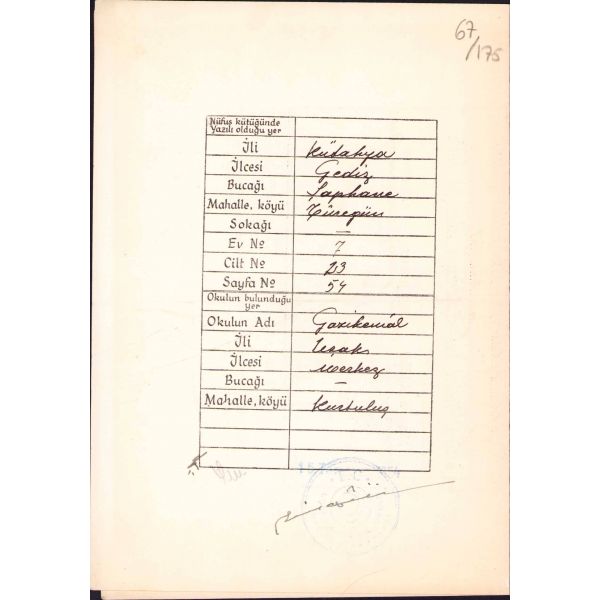 67
/175
Nüfus kütüğünde
Yazılı olduğu yer
İli Kütahya
İlcesi Gediz
Bucağı Şaphane
Mahalle, köyü
Sokağı —
Ev No 7
Cilt No 23
Sayfa No 54
Okulun bulunduğu
yer
Okulun Adı Gazikemâl
İli Uşak
İlcesi Merkez
Bucağı —
Mahalle, köyü Kurtuluş